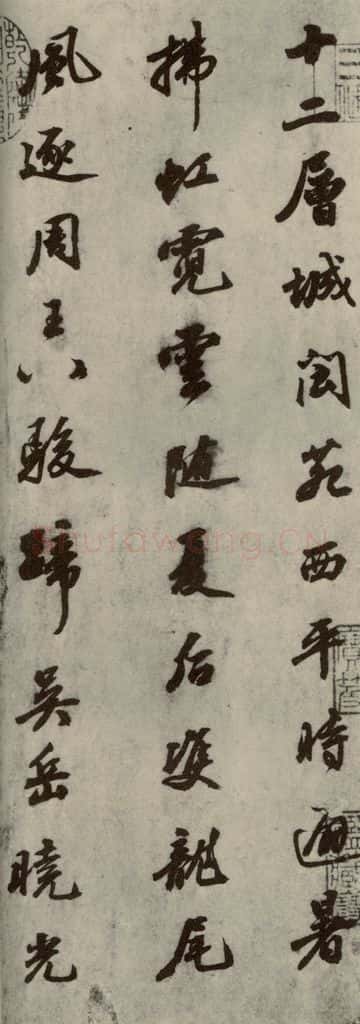 十二層城閬苑西平時避暑
拂虹霓雲隨夏后雙龍尾
風逐周王八駿蹄吳岳曉光
Shufawang.CN